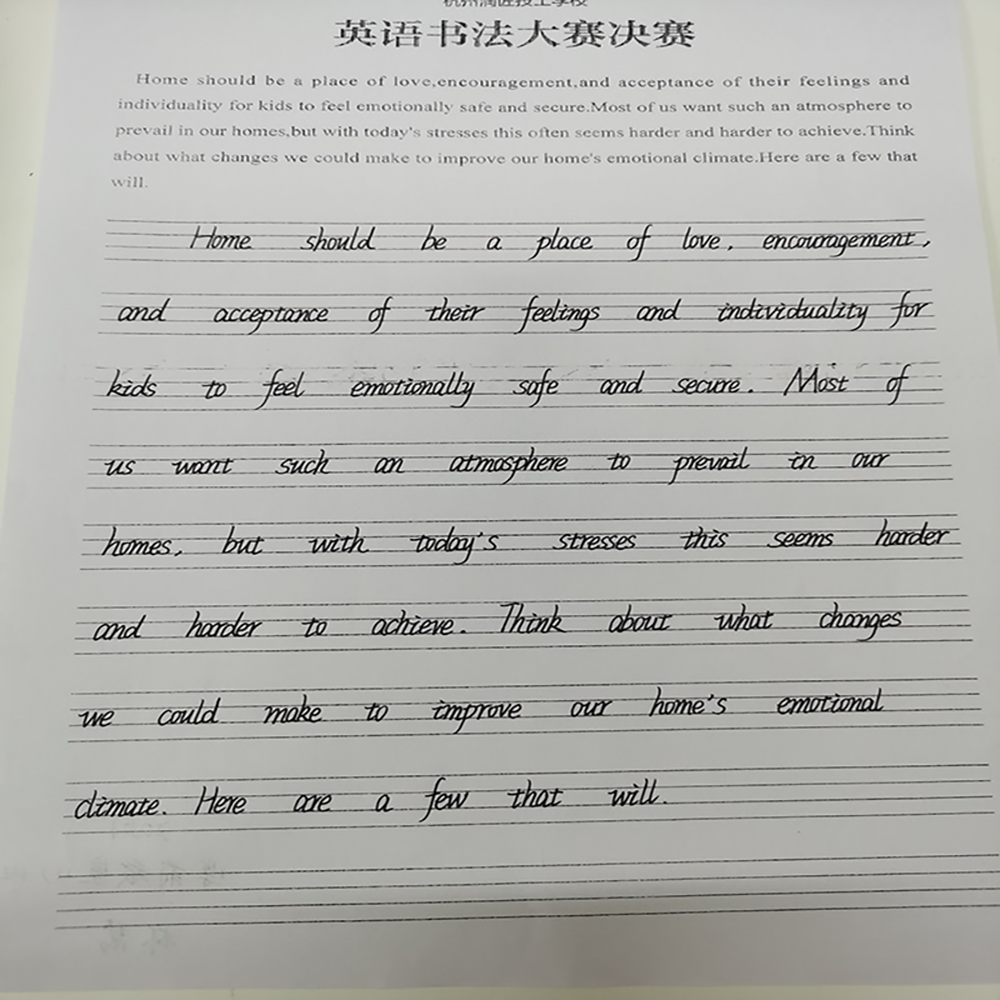 英语书法大赛决赛
Home should be a place of love,encouragement,and acceptance of their feelings and
individuality for kids to feel emotionally safe and secure.Most of us want such an atmosphere to
prevail in our homes,but with today's stresses this often seems harder and harder to achieve.Think
about what changes we could make to improve our home's emotional climate.Here are a few that
will.
Home should be a place of love, encouragement,
and acceptance of their feelings and individuality for
kids to feel emotionally safe and secure. Most of
us want such an atmosphere to prevail in our
homes, but with today's stresses this seems harder
and harder to achieve. Think about what changes
we could make to improve our home's emotional
climate. Here are a few that will.